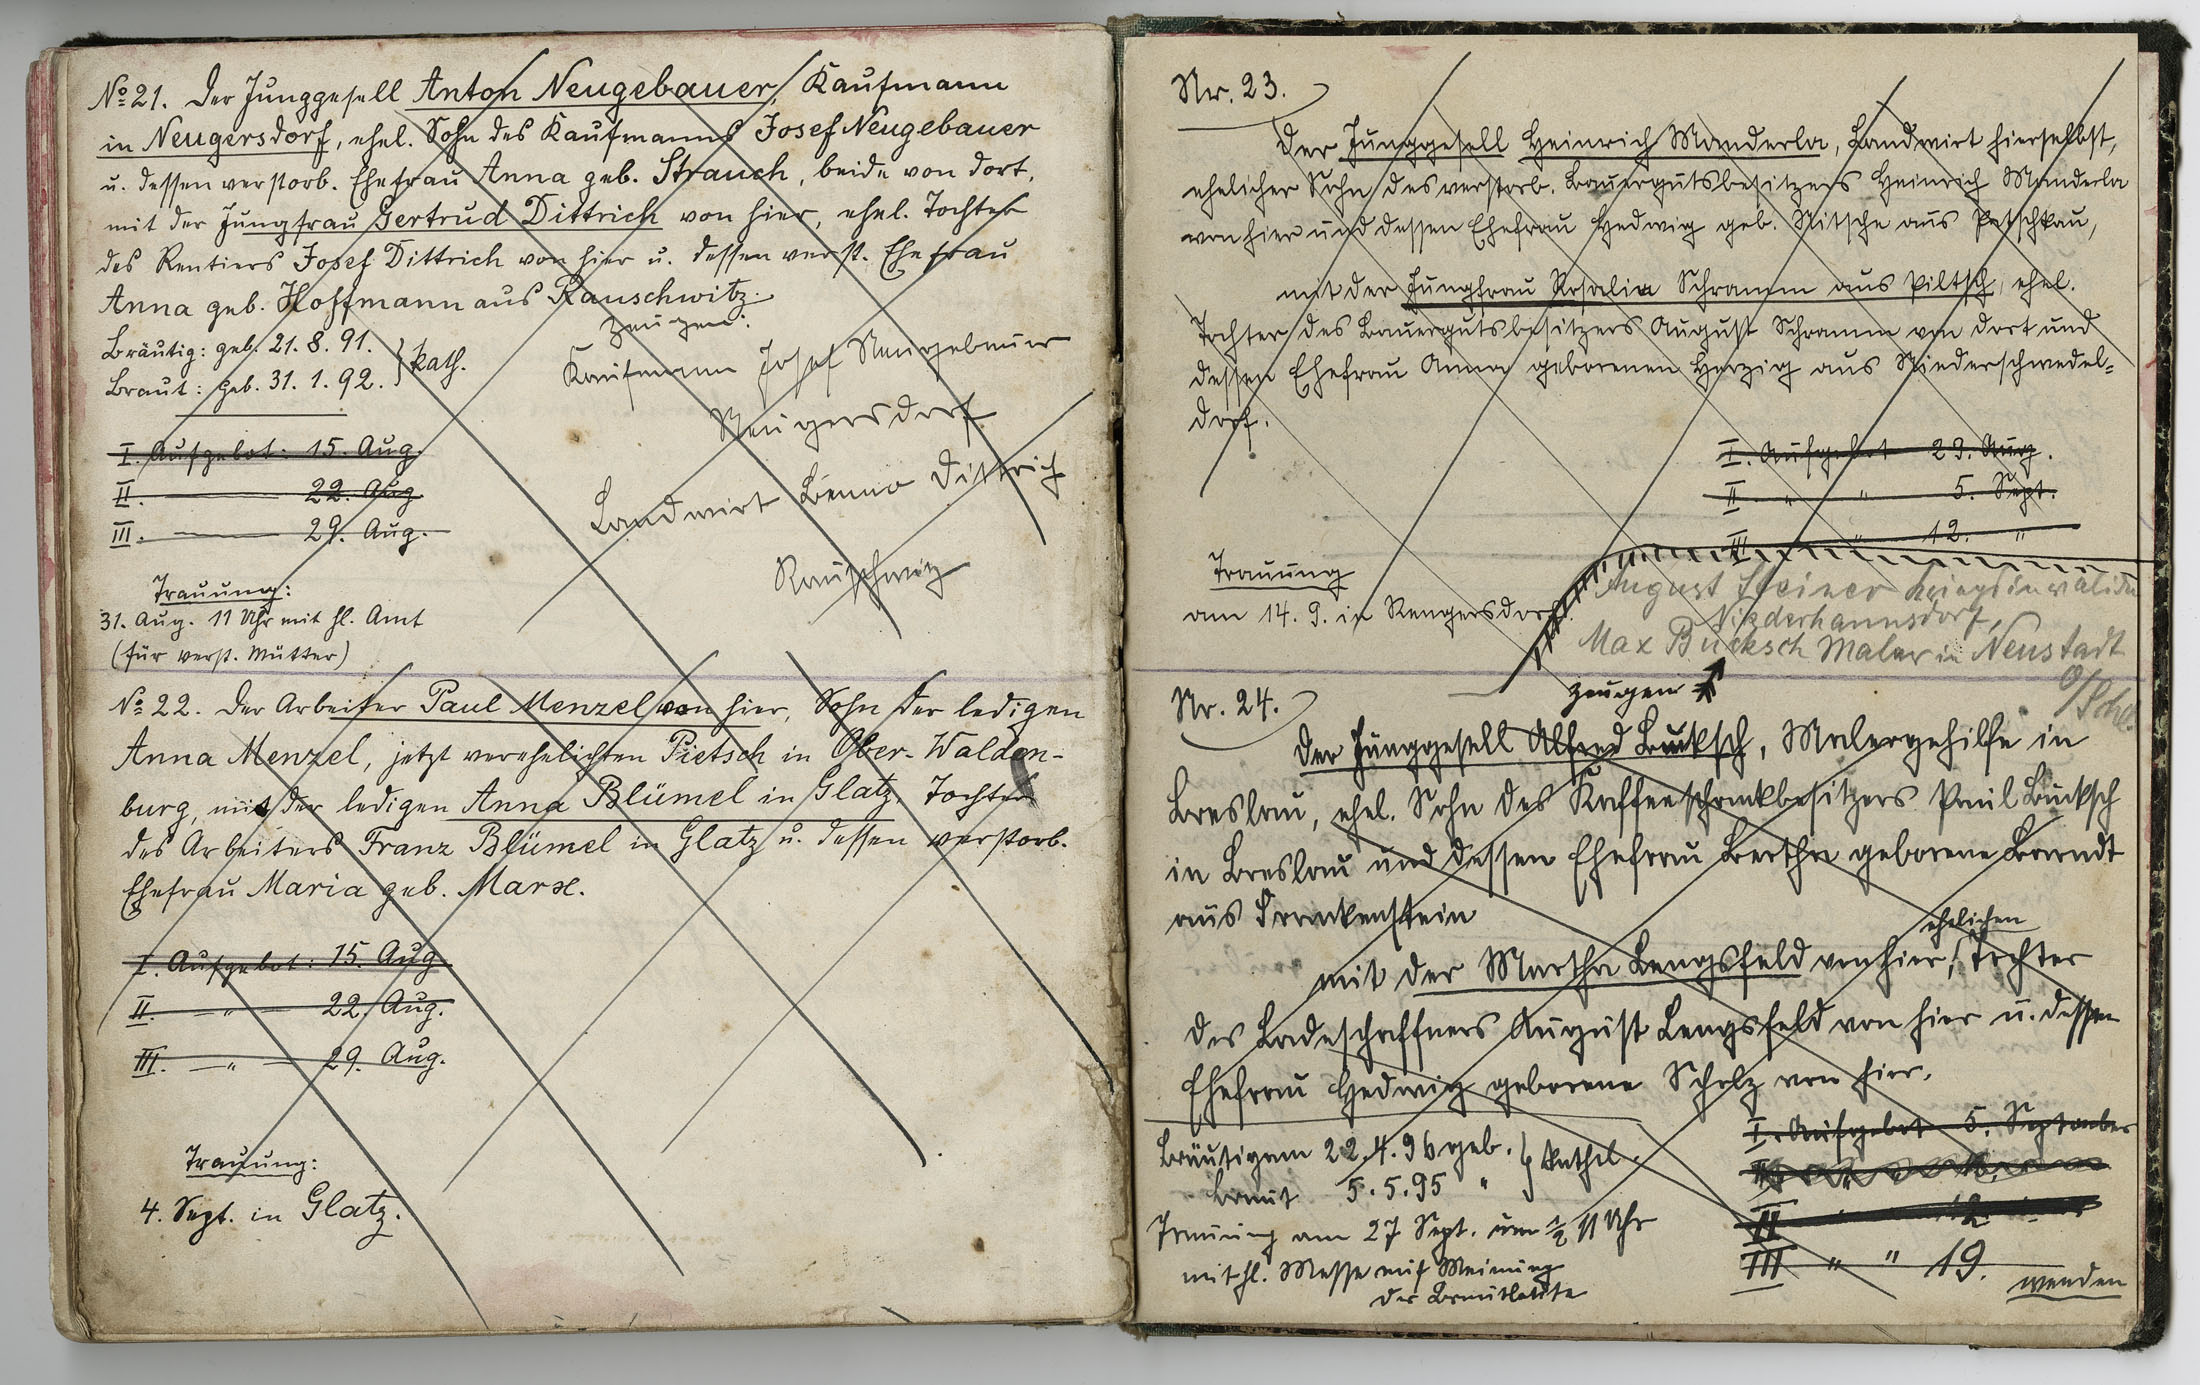 No 21. Der Junggesell Anton Neugebauer, Kaufmann
in Neugersdorf, ehel. Sohn des Kaufmanns Josef Neugebauer
u. dessen verstorb. Ehefrau Anna geb. Strauch, beide von dort,
mit der Jungfrau Gertrud Dittrich von hier, ehel. Tochter
des Rentiers Josef Dittrich von hier u. dessen verst. Ehefrau
Anna geb. Hoffmann aus Rauschwitz.
Bräutig: geb. 21. 8. 91.
Braut: geb. 31. 1. 92. } kath.
Zeugen:
Kaufmann Josef Neugebauer
Neugersdorf
Landwirt Benno Dittrich
Rauschwitz
I. Aufgebot: 15. Aug.
II. 22. Aug.
III. 29. Aug.
Trauung:
31. Aug. 11 Uhr mit hl. Amt
(für verst. Mutter)
No 22. Der Arbeiter Paul Menzel von hier, Sohn der ledigen
Anna Menzel, jetzt verehelichten Pietsch in Ober-Walden-
burg, mit der ledigen Anna Blümel in Glatz, Tochter
des Arbeiters Franz Blümel in Glatz u. dessen verstorb.
Ehefrau Maria geb. Marx.
I. Aufgebot: 15. Aug.
II. — " — 22. Aug.
III. — " — 29. Aug.
Trauung:
4. Sept. in Glatz.
Nr. 23.
Der Junggesell Heinrich Manderla, Landwirt hierselbst,
ehelicher Sohn des verstorb. Bauergutsbesitzers Heinrich Manderla
von hier und dessen Ehefrau Hedwig geb. Nitsche aus Patschkau,
mit der Jungfrau Rosalia Schramm aus Piltsch, ehel.
Tochter des Bauergutsbesitzers August Schramm von dort und
dessen Ehefrau Anna geborenen Herzig aus Niederschwedel=
dorf.
I. Aufgebot 29. Aug.
II " " 5. Sept.
III " 12. "
Trauung
am 14. 9. in Rengersdorf
August Steiner Kriegsinvalide
Niederhannsdorf,
Max Bucksch Maler in Neustadt
O/Schl.
Zeugen
Nr. 24.
Der Junggesell Alfred Bucksch, Malergehilfe in
Breslau, ehel. Sohn des Kaffeeschankbesitzers Paul Bucksch
in Breslau und dessen Ehefrau Bertha geborene Barndt
aus Frankenstein
ehelichen
mit der Martha Lengsfeld von hier, Tochter
des Ladeschaffners August Lengsfeld von hier u. dessen
Ehefrau Hedwig geborene Scholz von hier.
Bräutigam 22. 4. 96 geb. } kathol.
Braut 5. 5. 95 "
Trauung am 27 Sept. um ½ 11 Uhr
mit hl. Messe auf Meinung
der Brautleute
I. Aufgebot 5. September
II 12.
III " " 19.
wenden